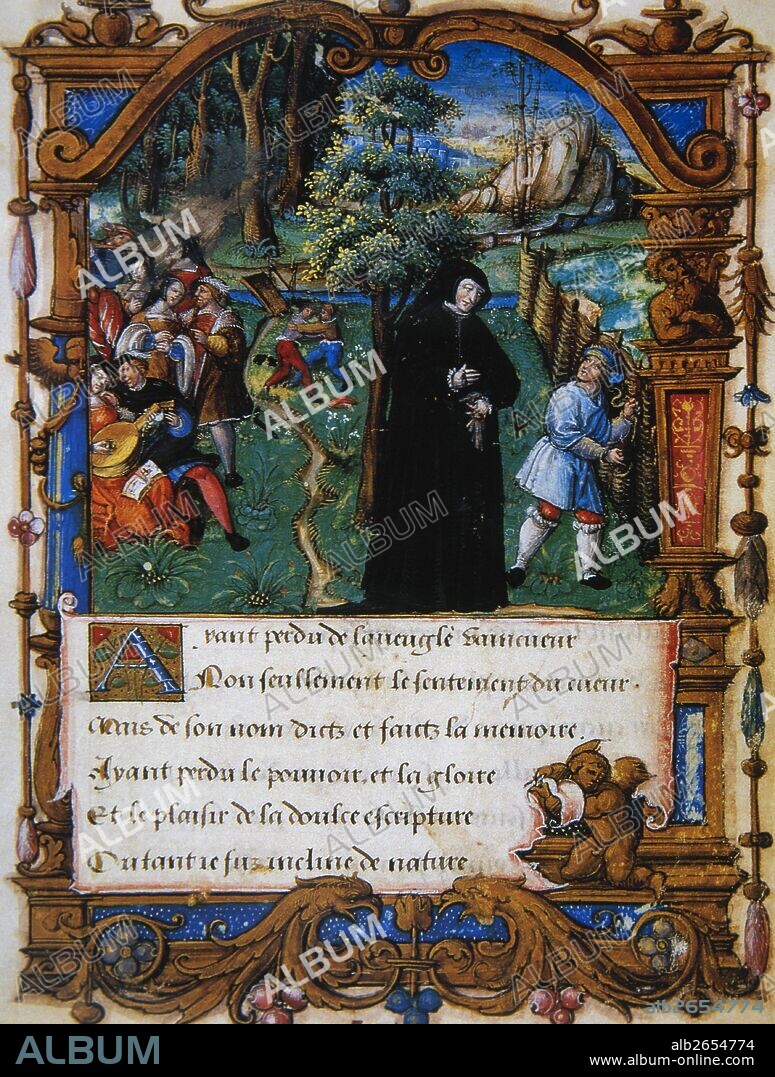 Ayant perdu de laueuglè vaincueur
Non seullement le sentement du cueur.
Mais de son nom dictz et faictz la memoire.
Ayant perdu le pouuoir, et la gloire
Et le plaisir de la doulce escripture
Ou tant ie fuz incline de nature
ALBUM
alb2654774
ALBUM
alb2654774
www.album-online.com